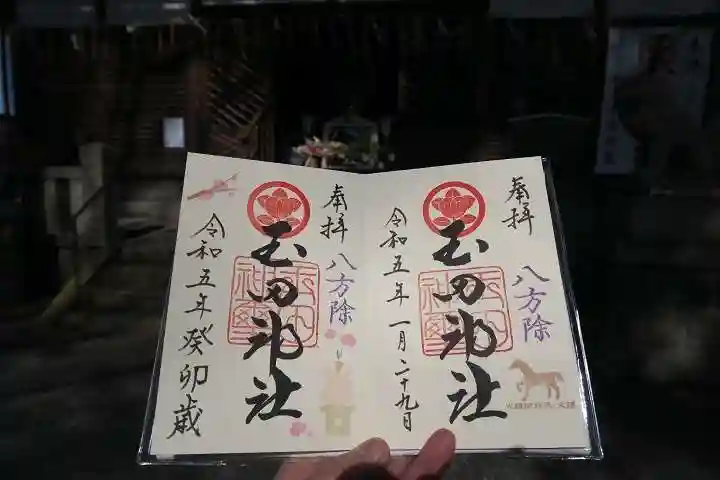 奉拝
八方除
玉田神社
令和五年一月二十九日
奉拝
八方除
玉田神社
令和五年癸卯歳